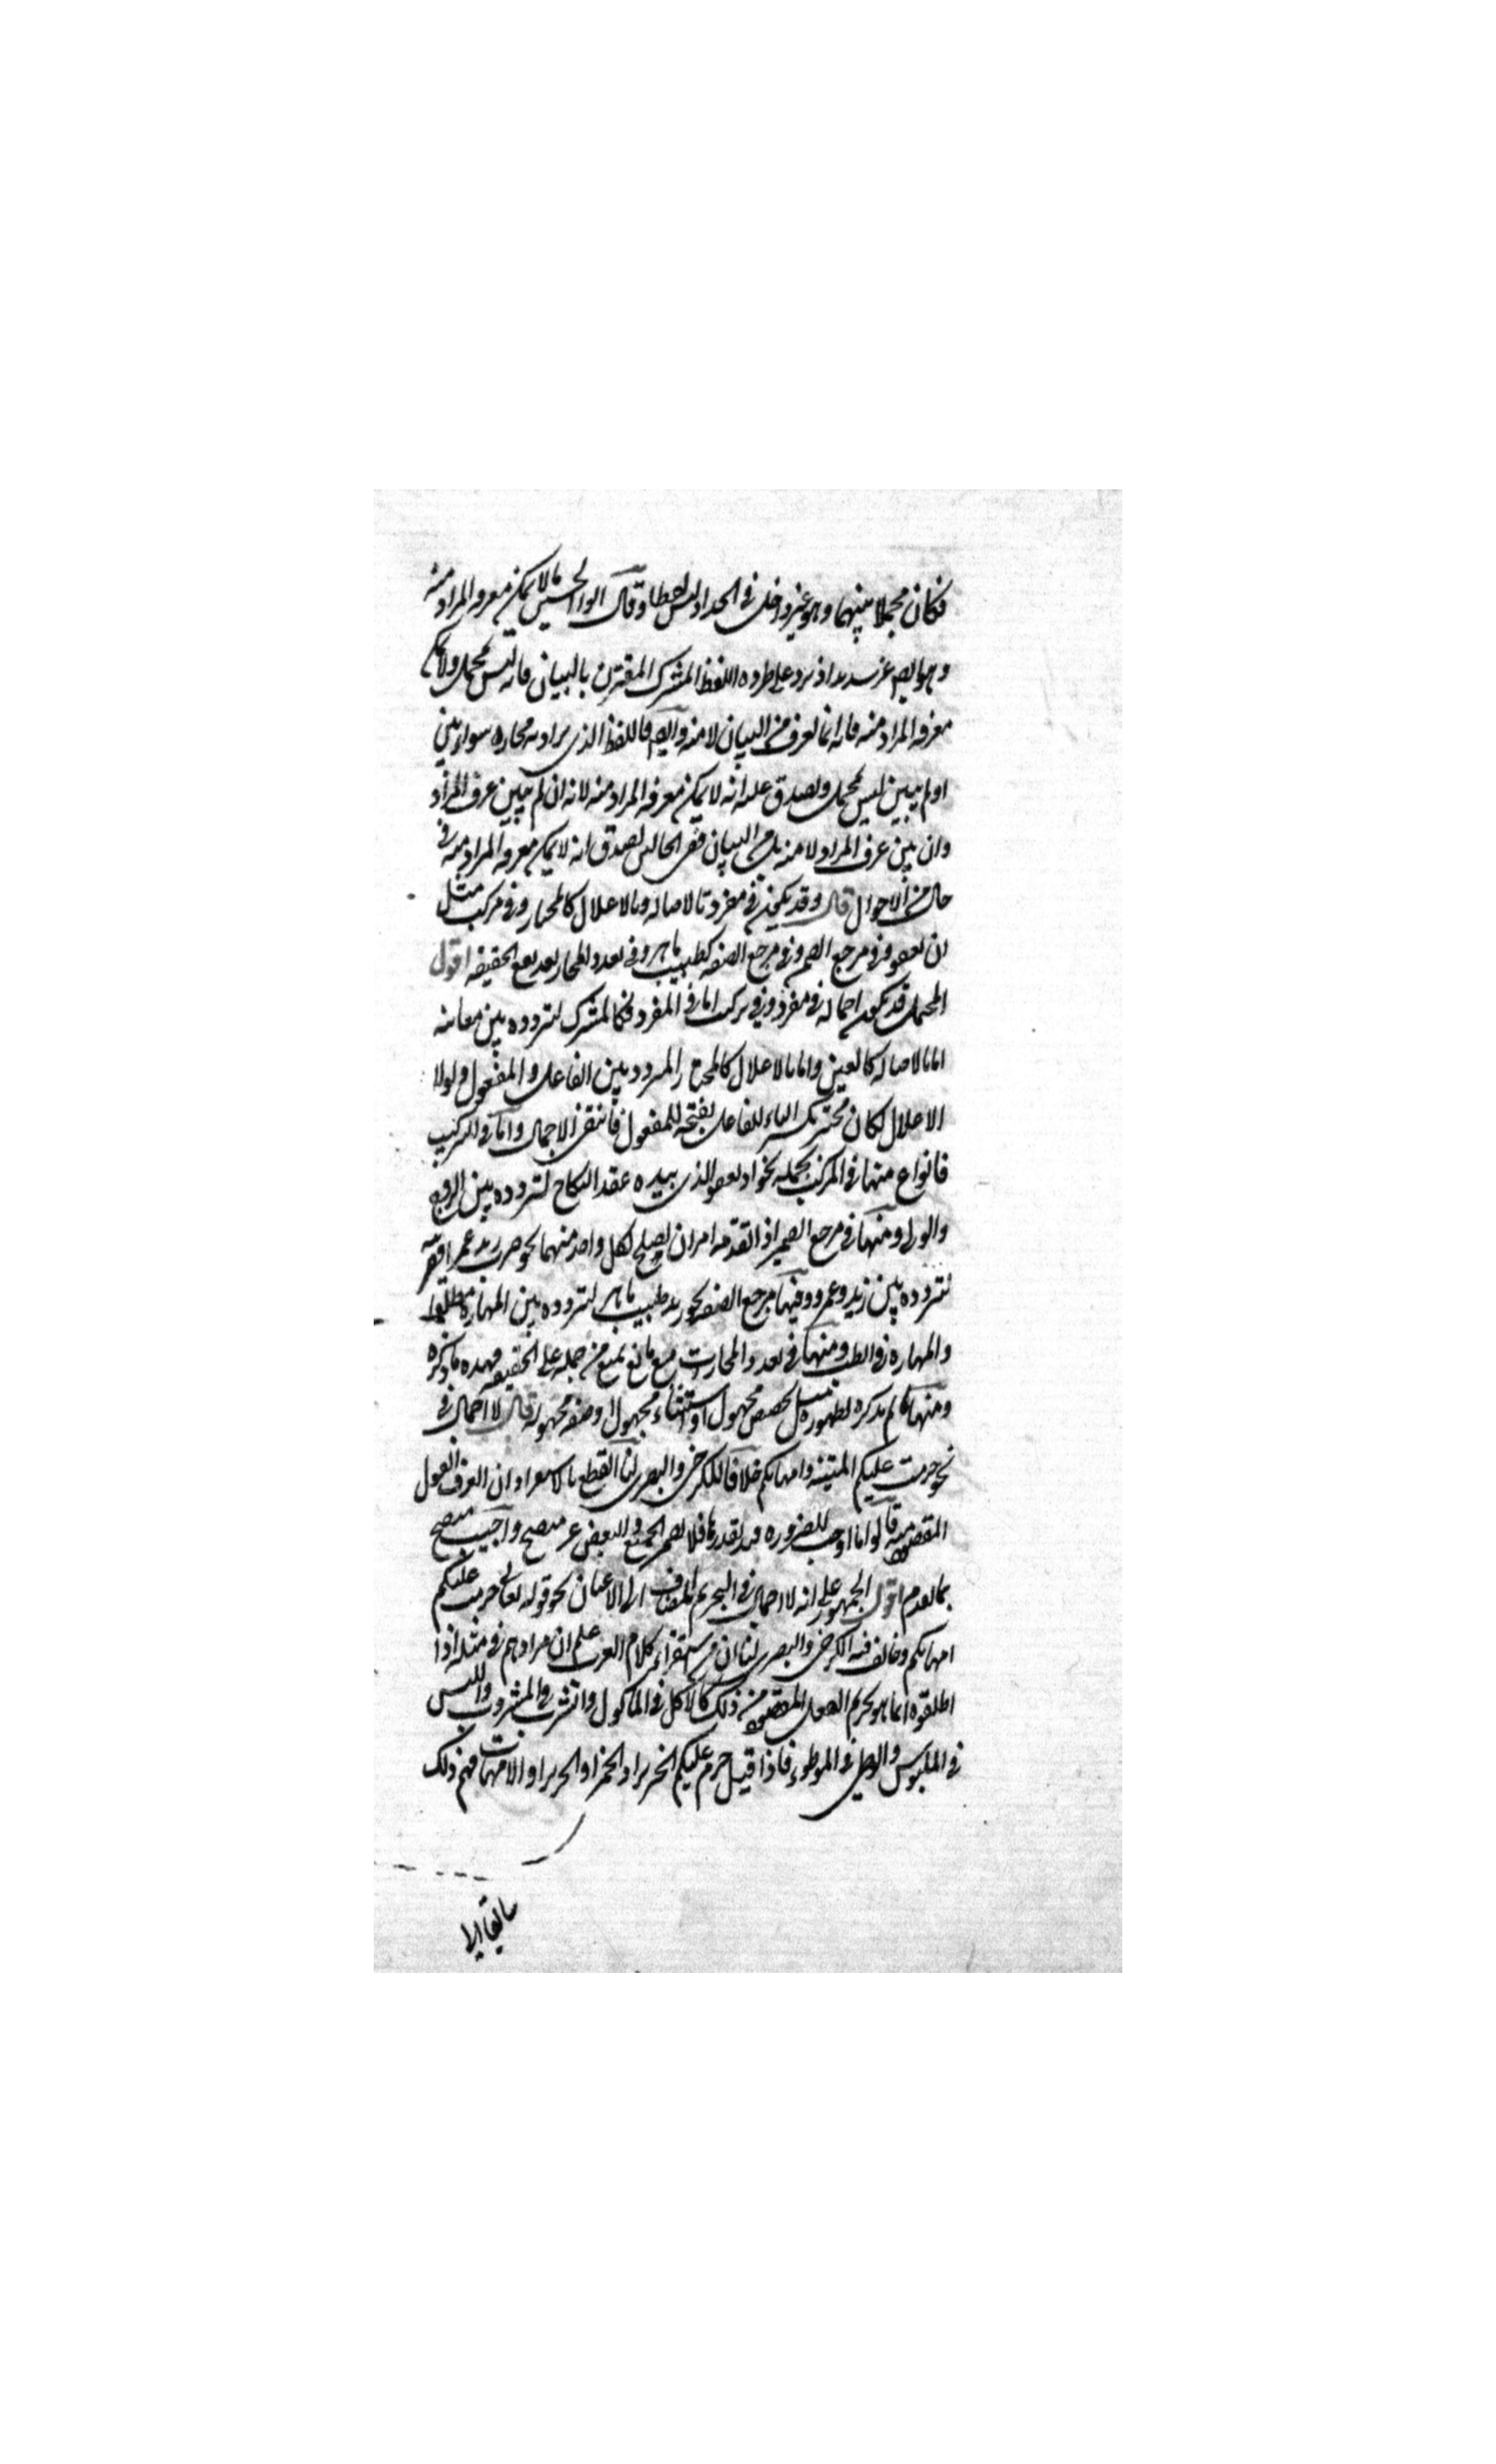 فكان مجملا بينهما وهو غير داخل فى الحد اذ ليس لفظا وقال ابو الحسين ما لا يمكن معرفه المراد منه
وهو ايضا غير سديد اذ يرد على طرده اللفظ المشترك المقترن بالبيان فانه ليس بمجمل ولا يمكن
معرفه المراد منه فانه انما يعرف من البيان لا منه وايضا فاللفظ الذى يراد به مجازه سواء بين
او لم يبين ليس بمجمل ويصدق عليه انه لا يمكن معرفه المراد منه لانه ان لم يبين عرف المراد
وان بين عرف المراد لا منه بل من البيان ففى الحالين يصدق انه لا يمكن معرفه المراد منه فى
حال من الاحوال قال وقد يكون فى مفرد بالاصاله وبالاعلال كالمختار وفى مركب مثل
ان يعفو وفى مرجع الضمير وفى مرجع الصفه كطبيب ماهر وفى تعدد المجاز بعد منع الحقيقه اقول
المجمل قد يكون اجماله فى مفرد وفى تركيب اما فى المفرد فكالمشترك لتردده بين معانيه
اما بالاصاله كالعين واما بالاعلال كالمختار المتردد بين الفاعل والمفعول ولولا
الاعلال لكان مختير بكسر الياء للفاعل بفتحه للمفعول فانتفى الاجمال واما فى التركيب
فانواع منها فى المركب بجملته نحو او يعفو الذى بيده عقد النكاح لتردده بين الزوج
والولى ومنها فى مرجع الضمير اذا تقدمه امران يصلح لكل واحد منهما نحو ضرب زيد عمرا
لتردده بين زيد وعمرو ومنها مرجع الصفه نحو زيد طبيب ماهر لتردده بين المهاره مطلقا
والمهاره فى الطب ومنها فى تعدد المجازات مع مانع يمنع من حمله على الحقيقه فهذه ما ذكره
ومنها ما لم يذكره لظهوره مثل تخصيص مجهول او استثناء مجهول او صفه مجهوله قال لا اجمال فى
نحو حرمت عليكم الميتة وامهاتكم خلافا للكرخى والبصرى لنا القطع بالاستقراء ان العرف الفعل
المقصود منه قالوا ما وجب للضروره يقدر بقدرها فلا يضمر الجميع والبعض غير متضح واجيب متضح
بما تقدم اقول الجمهور على انه لا اجمال فى التحريم المضاف الى الاعيان نحو قوله تعالى حرمت عليكم
امهاتكم وخالف فيه الكرخى والبصرى لنا ان من استقراء كلام العرب علم ان مرادهم فى مثله اذا
اطلقوه انما هو تحريم الفعل المقصود من ذلك كالاكل فى الماكول والشرب فى المشروب واللبس
فى الملبوس والوطى فى الموطوء فاذا قيل حرم عليكم الخنزير او الخمر او الحرير او الامهات فهم ذلك